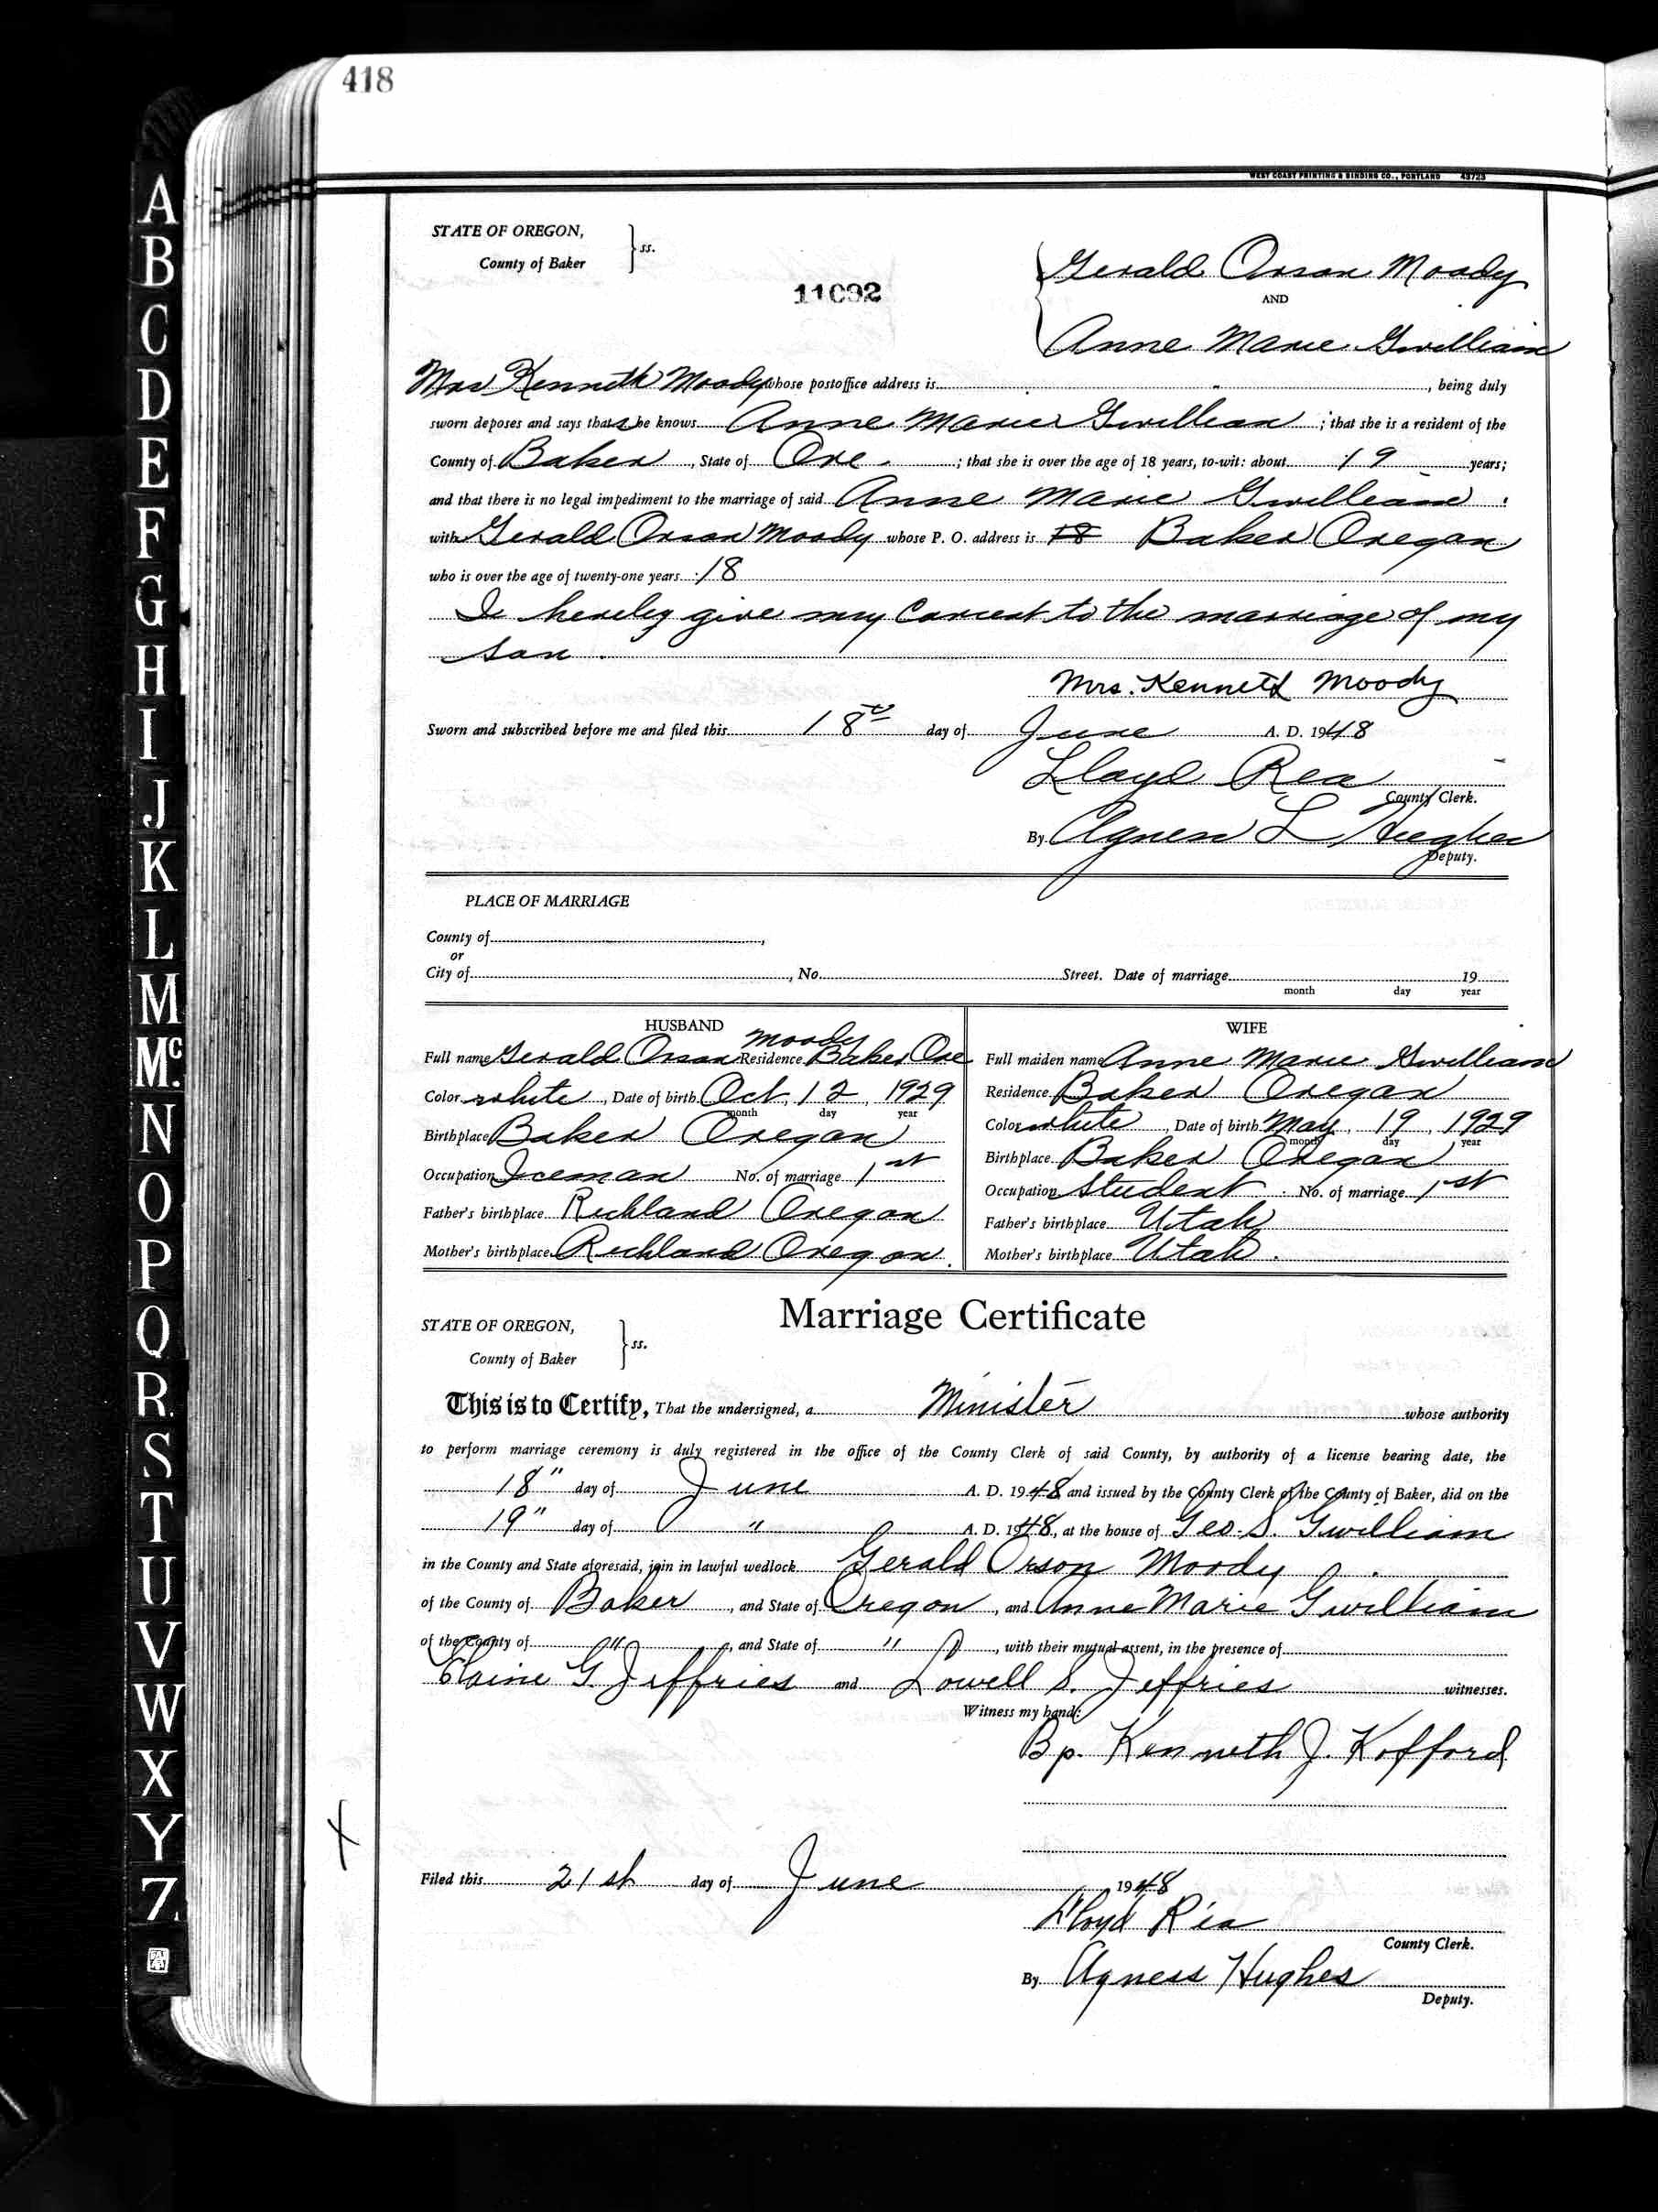 418
WEST COAST PRINTING & BINDING CO., PORTLAND 43723
STATE OF OREGON,
County of Baker
ss.
11092
Gerald Orson Moody
AND
Anne Marie Gwilliam
Mrs Kenneth Moody whose postoffice address is , being duly
sworn deposes and says that she knows Anne Marie Gwilliam ; that she is a resident of the
County of Baker , State of Ore. ; that she is over the age of 18 years, to-wit: about 19 years;
and that there is no legal impediment to the marriage of said Anne Marie Gwilliam
with Gerald Orson Moody whose P. O. address is 18 Baker Oregon
who is over the age of twenty-one years 18
I hereby give my consent to the marriage of my
son.
Mrs. Kenneth Moody
Sworn and subscribed before me and filed this 18th day of June A. D. 1948
Lloyd Rea
County Clerk.
By Agness L Hughes
Deputy.
PLACE OF MARRIAGE
County of ,
or
City of , No. Street. Date of marriage 19
month day year
HUSBAND
Full name Gerald Orson Moody Residence Baker Ore
Color white , Date of birth Oct. 12, 1929
month day year
Birthplace Baker Oregon
Occupation Iceman No. of marriage 1st
Father's birthplace Richland Oregon
Mother's birthplace Richland Oregon.
WIFE
Full maiden name Anne Marie Gwilliam
Residence Baker Oregon
Color white , Date of birth May 19, 1929
month day year
Birthplace Baker Oregon
Occupation Student No. of marriage 1st
Father's birthplace Utah
Mother's birthplace Utah.
Marriage Certificate
STATE OF OREGON,
County of Baker
ss.
This is to Certify, That the undersigned, a Minister whose authority
to perform marriage ceremony is duly registered in the office of the County Clerk of said County, by authority of a license bearing date, the
18" day of June A. D. 1948 and issued by the County Clerk of the County of Baker, did on the
19" day of " A. D. 1948, at the house of Geo. S. Gwilliam
in the County and State aforesaid, join in lawful wedlock Gerald Orson Moody
of the County of Baker , and State of Oregon , and Anne Marie Gwilliam
of the County of " , and State of " , with their mutual assent, in the presence of
Elaine G. Jeffries and Lowell S. Jeffries witnesses.
Witness my hand:
Bp. Kenneth J. Kofford
X
Filed this 21st day of June 1948
Lloyd Rea
County Clerk.
By Agness Hughes
Deputy.
A
B
C
D
E
F
G
H
I
J
K
L
M
Mc.
N
O
P
Q
R
S
T
U
V
W
X
Y
Z